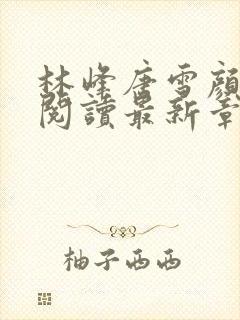 林峰唐雪顏
閱讀最新章
柚子西西